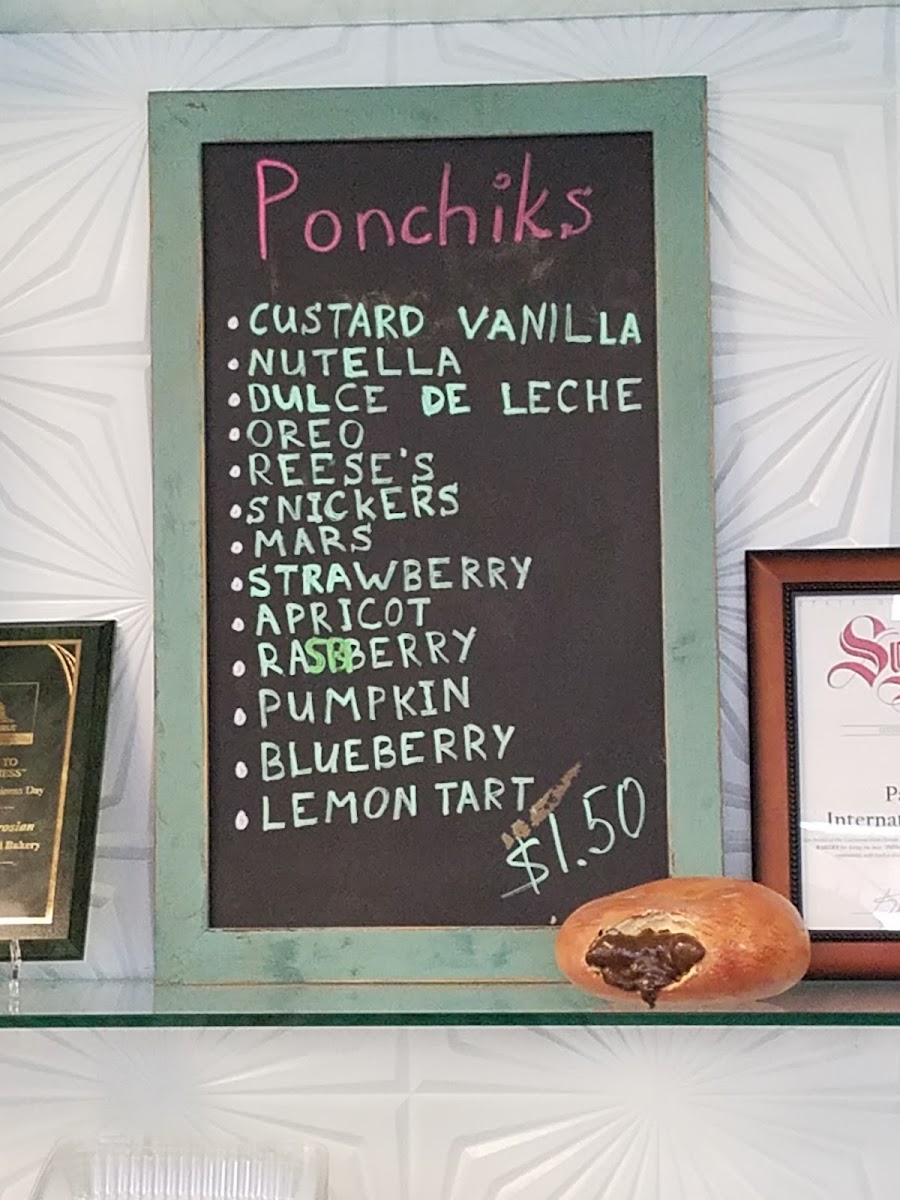 Ponchiks
• CUSTARD VANILLA
• NUTELLA
• DULCE DE LECHE
• OREO
• REESE'S
• SNICKERS
• MARS
• STRAWBERRY
• APRICOT
• RASBERRY
• PUMPKIN
• BLUEBERRY
• LEMON TART
$1.50
TO
Bakery